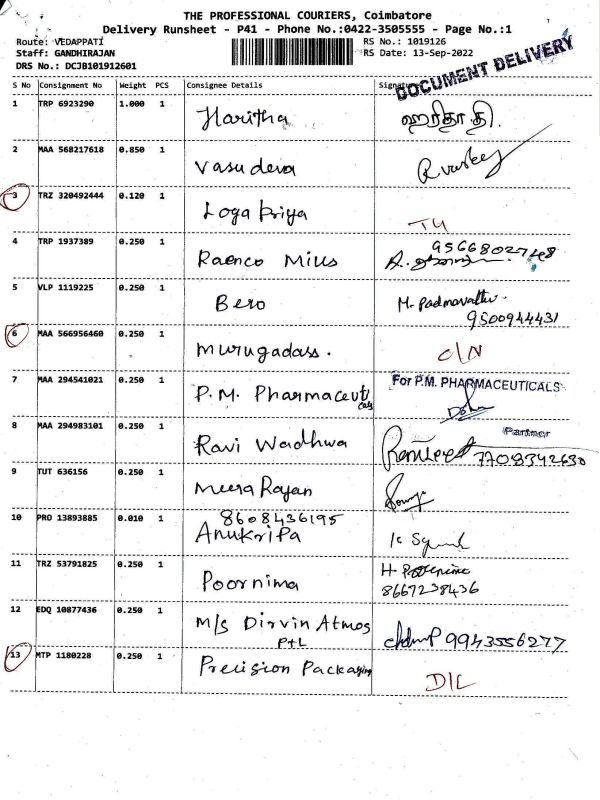 THE PROFESSIONAL COURIERS, Coimbatore
Delivery Runsheet - P41 - Phone No.:0422-3505555 - Page No.:1
Route: VEDAPPATI
RS No.: 1019126
Staff: GANDHIRAJAN
RS Date: 13-Sep-2022
DRS No.: DCJB101912601
DOCUMENT DELIVERY
S No Consignment No Weight PCS Consignee Details Signature
1 TRP 6923290 1.000 1 Haritha ஹரிதா தி.
2 MAA 568217618 0.850 1 Vasudeva
3 TRZ 320492444 0.120 1 Loga Priya
4 TRP 1937389 0.250 1 Raenco Mills 9566802748
5 VLP 1119225 0.250 1 Bero M. Padmavathi
9500944431
6 MAA 566956460 0.250 1 Murugadass. O/N
7 MAA 294541021 0.250 1 P.M. Pharmaceuticals For P.M. PHARMACEUTICALS
Partner
8 MAA 294983101 0.250 1 Ravi Wadhwa 7708342630
9 TUT 636156 0.250 1 Meera Rajan
8608436195
10 PRO 13893885 0.010 1 Anukripa
11 TRZ 53791825 0.250 1 Poornima
8667238436
12 EDQ 10877436 0.250 1 M/s Dirvin Atmos 9943556277
P+L
13 MTP 1180228 0.250 1 Precision Packaging D/L